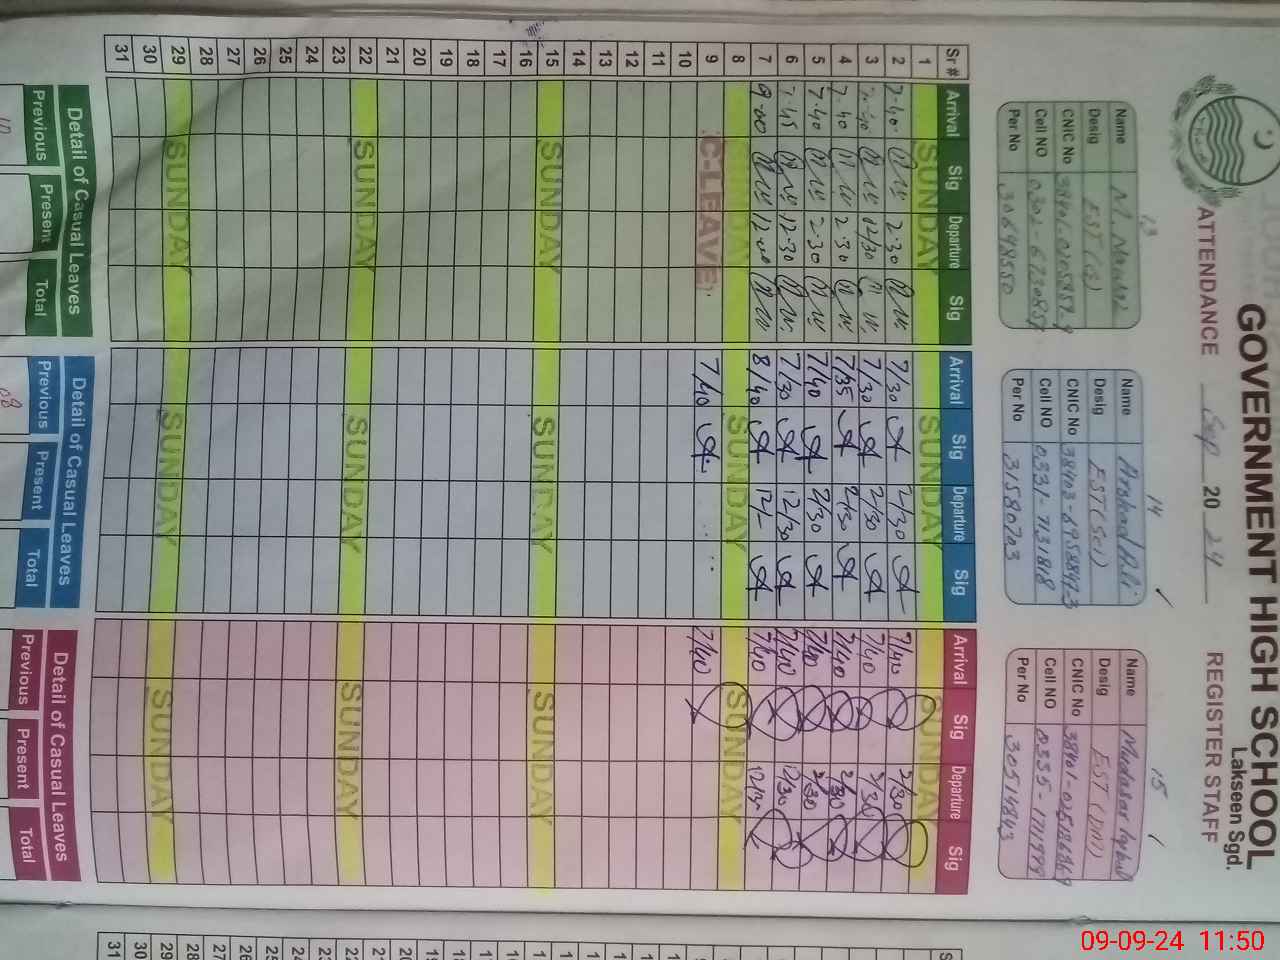 GOVERNMENT HIGH SCHOOL
Lakseen Sgd.
ATTENDANCE Sep 20 24 REGISTER STAFF
13
Name M. Nawaz
Desig EST (G)
CNIC No
Cell NO
Per No 30648550
14
Name Arshad Ali
Desig EST (Sci)
CNIC No
Cell NO 0331-7131818
Per No 31580703
15
Name Mudasar Iqbal
Desig EST (DM)
CNIC No
Cell NO
Per No 30514843
Sr# Arrival Sig Departure Sig Arrival Sig Departure Sig Arrival Sig Departure Sig
1 SUNDAY SUNDAY SUNDAY
2 7.40 2.30 7/30 2/30 7/40 2/30
3 7.40 12/30 7/30 2/30 7/40 2/30
4 7.40 2.30 7/35 2/30 7/40 2/30
5 7.40 2.30 7/40 2/30 7/40 2/30
6 7.45 12.30 7/30 12/30 7/40 12/30
7 8/40 12/- 7/40
8 SUNDAY SUNDAY SUNDAY
9 C-LEAVE 7/40 7/40
10
11
12
13
14
15 SUNDAY SUNDAY SUNDAY
16
17
18
19
20
21
22 SUNDAY SUNDAY SUNDAY
23
24
25
26
27
28
29 SUNDAY SUNDAY SUNDAY
30
31
Detail of Casual Leaves Detail of Casual Leaves Detail of Casual Leaves
Previous Present Total Previous Present Total Previous Present Total
10 08
09-09-24 11:50